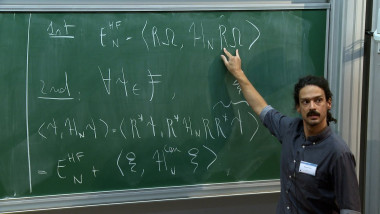 1st E_N^{HF} = ⟨RΩ, H_N RΩ⟩
2nd: ∀ψ ∈ F,
⟨ψ, H_N ψ⟩ = ⟨R*ψ, R* H_N R R*ψ⟩
= E_N^{HF} + ⟨ξ, H_N^{can} ξ⟩